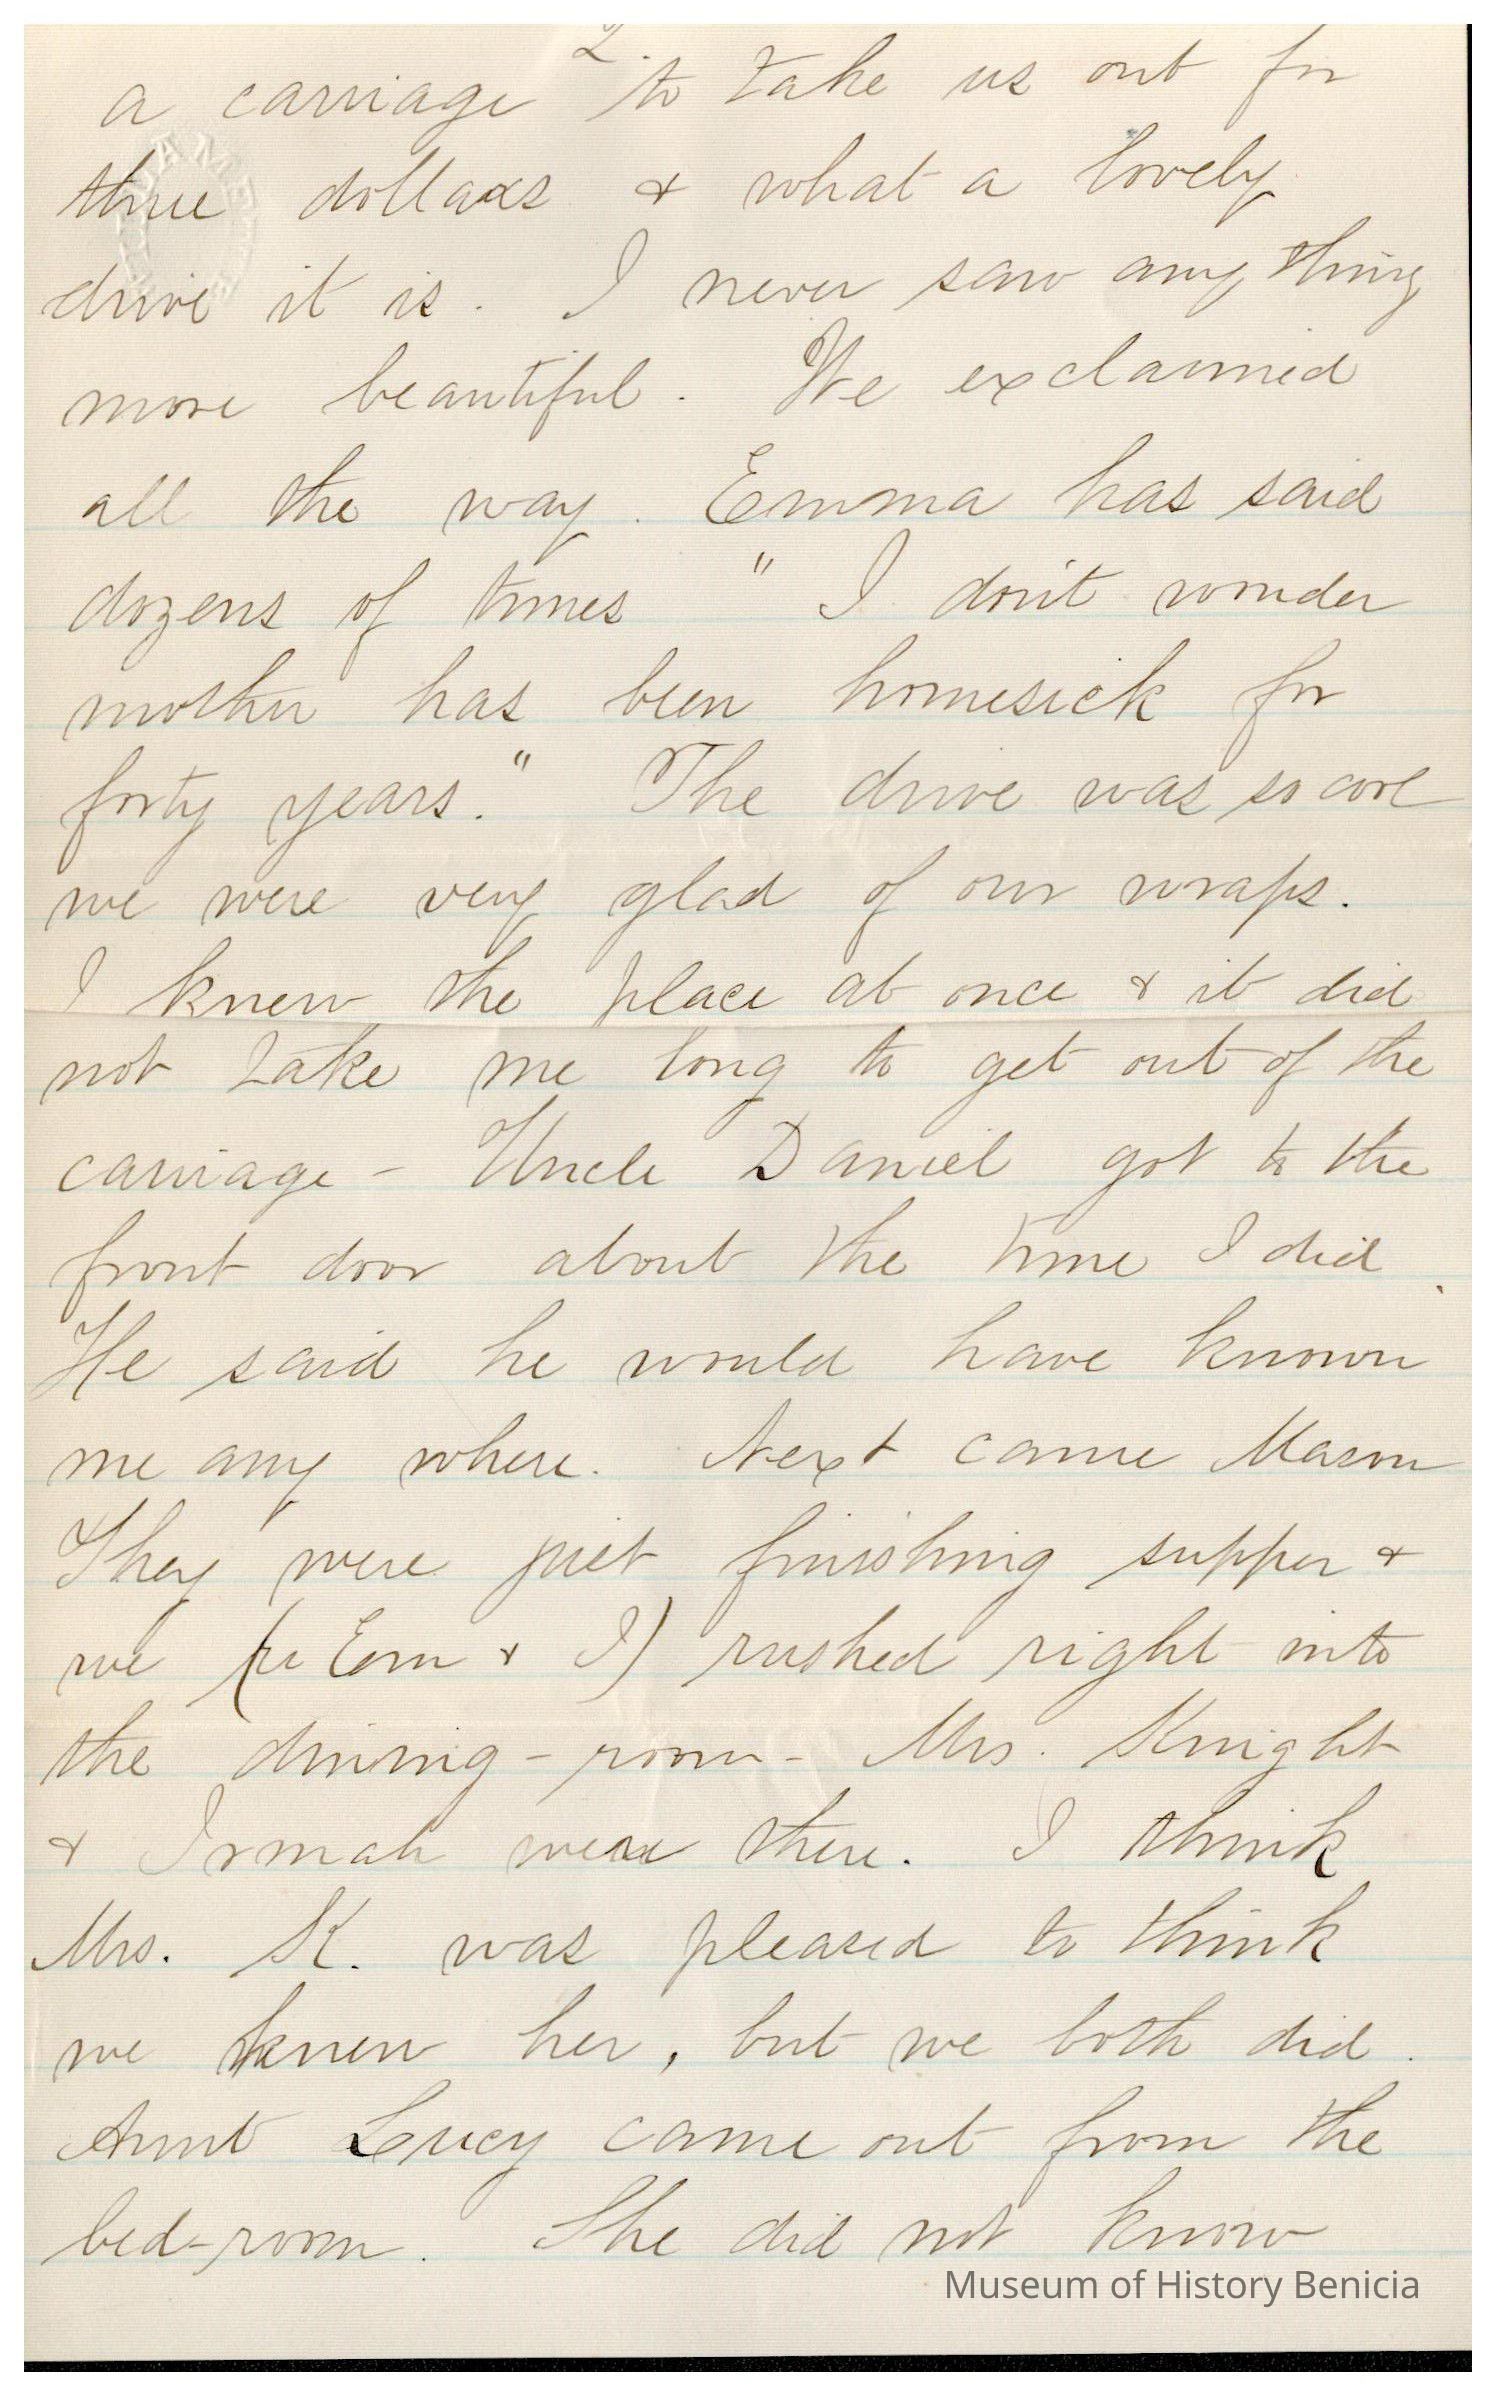 2.
a carriage to take us out for
three dollars & what a lovely
drive it is. I never saw any thing
more beautiful. We exclaimed
all the way. Emma has said
dozens of times " I don't wonder
mother has been homesick for
forty years." The drive was so cool
we were very glad of our wraps.
I knew the place at once & it did
not take me long to get out of the
carriage - Uncle Daniel got to the
front door about the time I did.
He said he would have known
me any where. Next came Mason
They were just finishing supper &
we ( Em & I) rushed right into
the dining-room - Mrs. Knight
& Irmah were there. I think
Mrs. K. was pleased to think
we knew her, but we both did.
Aunt Lucy came out from the
bed-room. She did not know
Museum of History Benicia